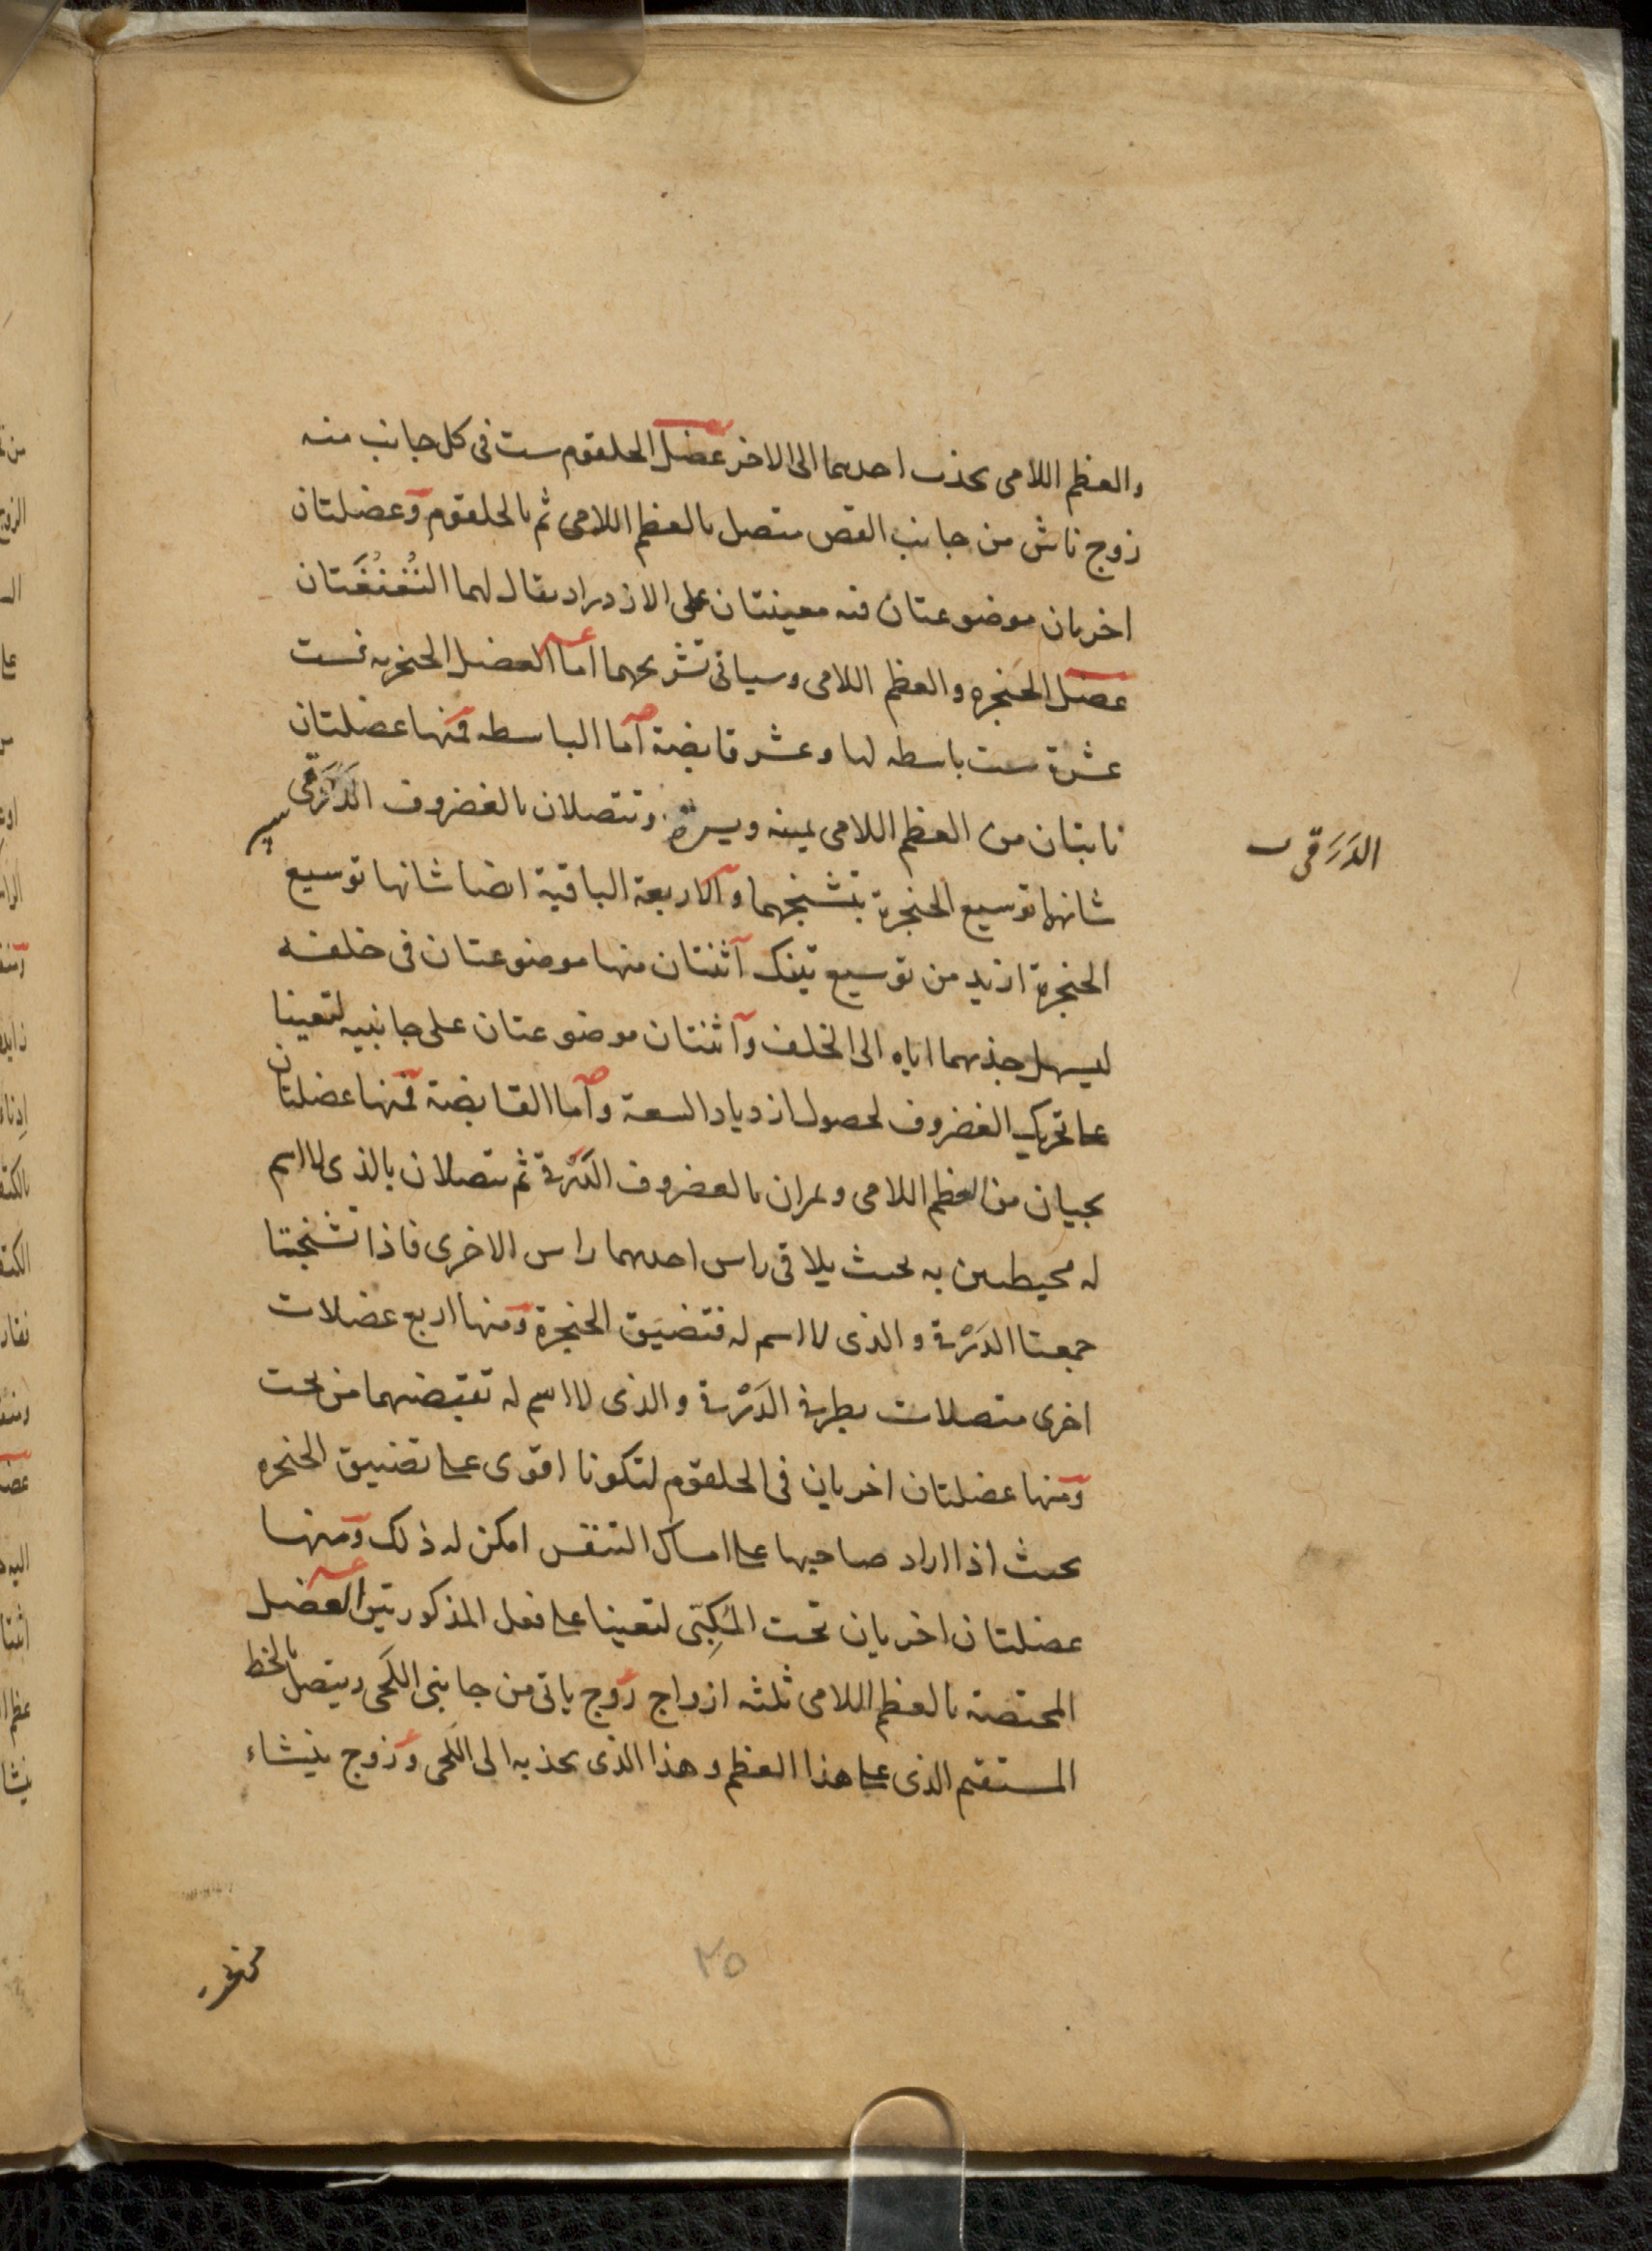 والعظم اللامى يجذب احدهما الى الاخر عضل الحلقوم ست فى كل جانب منه
زوج ناش من جانب القص متصل بالعظم اللامى ثم بالحلقوم وعضلتان
اخريان موضوعتان فيه معينتان على الازدراد يقال لهما النُغنُغَتان
عضل الحنجره والعظم اللامى وسياتى تشريحهما اما العضل الحنجريه فست
عشرة ست باسطه لها وعشر قابضة اما الباسطه فمنها عضلتان
نابتان من العظم اللامى يمينه ويسرة وتتصلان بالغضروف الدَرَقى
الدَرَقى
شانهما توسيع الحنجرة بتشنجهما والاربعة الباقية ايضا شانها توسيع
الحنجرة ازيد من توسيع تينك اثنتان منها موضوعتان فى خلفه
ليسهل جذبهما اياه الى الخلف واثنتان موضوعتان على جانبيه لتعينا
على تحريك الغضروف لحصول ازدياد السعة واما القابضة فمنها عضلتان
يجيان من العظم اللامى ويمران بالغضروف الدَرَقى ثم يتصلان بالذى لا اسم
له محيطين به بحيث يلاقى راس احدهما راس الاخرى فاذا تشنجتا
جمعتا الدَرَقى والذى لا اسم له فتضيق الحنجرة ومنها اربع عضلات
اخرى متصلات بطرفى الدَرَقى والذى لا اسم له تقبضهما من تحت
ومنها عضلتان اخريان فى الحلقوم لتكونا اقوى على تضييق الحنجره
بحيث اذا اراد صاحبها على امساك التنفس امكن له ذلك ومنها
عضلتان اخريان تحت المُكِبّى لتعينا على فعل المذكورتين العضل
المختصة بالعظم اللامى ثلثه ازواج زوج ياتى من جانبى اللحى ويتصل بالخط
المستقيم الذى على هذا العظم وهذا الذى يجذبه الى اللحى وزوج ينشاء
٢٥